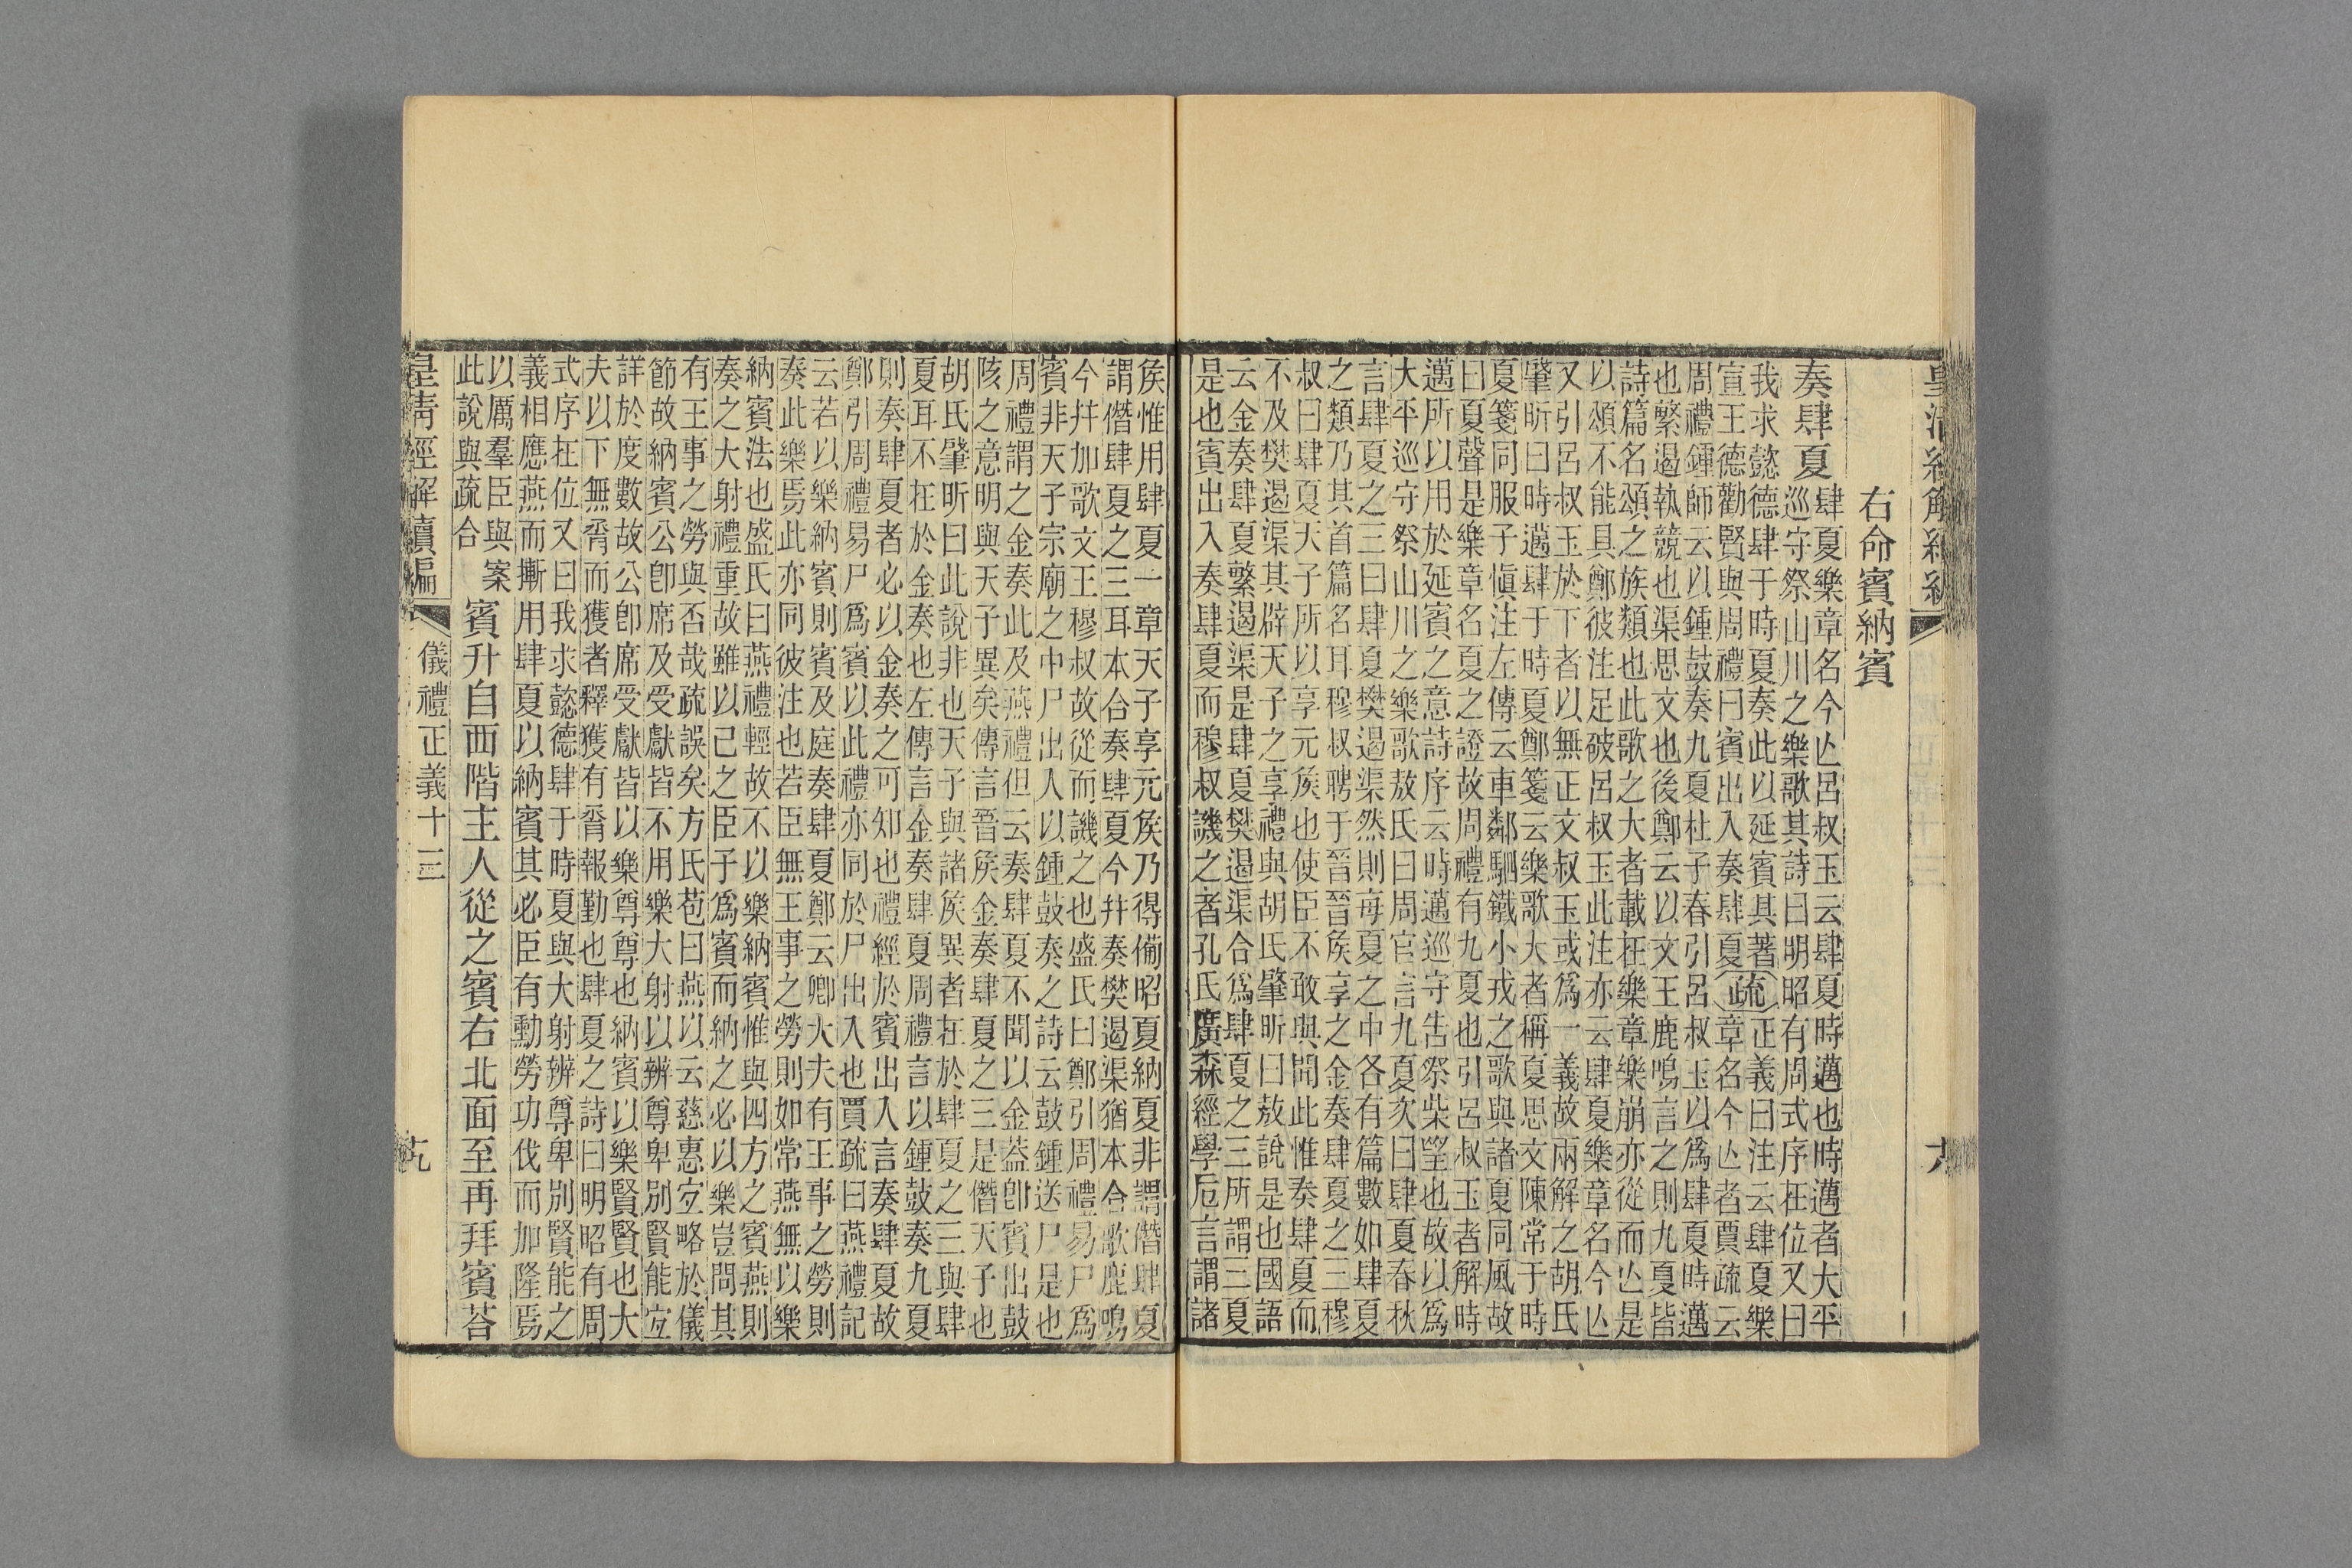 右命賓納賓
奏肆夏
肆夏樂章名今亾呂叔玉云肆夏時邁也時邁者大平
巡守祭山川之樂歌其詩曰明昭有周式序在位又曰
我求懿德肆于時夏奏此以延賓其著
宣王德勸賢與周禮曰賓出入奏肆夏
疏
正義曰注云肆夏樂
章名今亾者賈疏云
周禮鍾師云以鍾鼓奏九夏杜子春引呂叔玉以爲肆夏時邁
也繁遏執競也渠思文也後鄭云以文王鹿鳴言之則九夏皆
詩篇名頌之族類也此歌之大者載在樂章樂崩亦從而亾是
以頌不能具鄭彼注足破呂叔玉此注亦云肆夏樂章名今亾
又引呂叔玉於下者以無正文叔玉或爲一義故兩解之胡氏
肇昕曰時邁肆于時夏鄭箋云樂歌大者稱夏思文陳常于時
夏箋同服子愼注左傳云車鄰駟鐵小戎之歌與諸夏同風故
曰夏聲是樂章名夏之證故周禮有九夏也引呂叔玉者解時
邁所以用於延賓之意詩序云時邁巡守告祭柴望也故以爲
大平巡守祭山川之樂歌敖氏曰周官言九夏次曰肆夏春秋
言肆夏之三曰肆夏樊遏渠然則每夏之中各有篇數如肆夏
之類乃其首篇名耳穆叔聘于晉晉矦享之金奏肆夏之三穆
叔曰肆夏天子所以享元矦也使臣不敢與聞此惟奏肆夏而
不及樊遏渠其辟天子之享禮與胡氏肇昕曰敖說是也國語
云金奏肆夏繁遏渠是肆夏樊遏渠合爲肆夏之三所謂三夏
是也賓出入奏肆夏而穆叔譏之者孔氏廣森經學卮言謂諸
矦惟用肆夏一章天子享元矦乃得備昭夏納夏非謂僭肆夏
謂僭肆夏之三耳本合奏肆夏今幷奏樊遏渠猶本合歌鹿鳴
今幷加歌文王穆叔故從而譏之也盛氏曰鄭引周禮易尸爲
賓非天子宗廟之中尸出入以鍾鼓奏之詩云鼓鍾送尸是也
周禮謂之金奏此及燕禮但云奏肆夏不聞以金葢卽賓出鼓
陔之意明與天子異矣傳言晉矦金奏肆夏之三是僭天子也
胡氏肇昕曰此說非也天子與諸矦異者在於肆夏之三與肆
夏耳不在於金奏也左傳言金奏肆夏周禮言以鍾鼓奏九夏
則奏肆夏者必以金奏之可知也禮經於賓出入言奏肆夏故
鄭引周禮易尸爲賓以此禮亦同於尸出入也賈疏曰燕禮記
云若以樂納賓則賓及庭奏肆夏鄭云卿大夫有王事之勞則
奏此樂焉此亦同彼注也若臣無王事之勞則如常燕無以樂
納賓法也盛氏曰燕禮輕故不以樂納賓惟與四方之賓燕則
奏之大射禮重故雖以己之臣子爲賓而納之必以樂豈問其
有王事之勞與否哉疏誤矣方氏苞曰燕以云慈惠宐略於儀
節故納賓公卽席及受獻皆不用樂大射以辨尊卑別賢能宐
詳於度數故公卽席受獻皆以樂尊尊也納賓以樂賢賢也大
夫以下無脀而獲者釋獲有脀報勤也肆夏之詩曰明昭有周
式序在位又曰我求懿德肆于時夏與大射辨尊卑別賢能之
義相應燕而擬用肆夏以納賓其必臣有勳勞功伐而加隆焉
以厲羣臣與案
此說與疏合
賓升自西階主人從之賓右北面至再拜賓荅
皇淸經解續編
儀禮正義十三